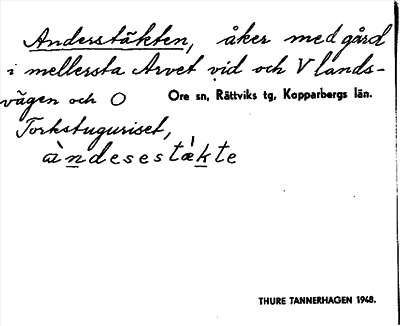 Andersstäkten, åker med gård
i mellersta Arvet vid och V lands-
vägen och O Ore sn, Rättviks tg, Kopparbergs län.
Torkstuguriset,
àndesestäkte
THURE TANNERHAGEN 1948.